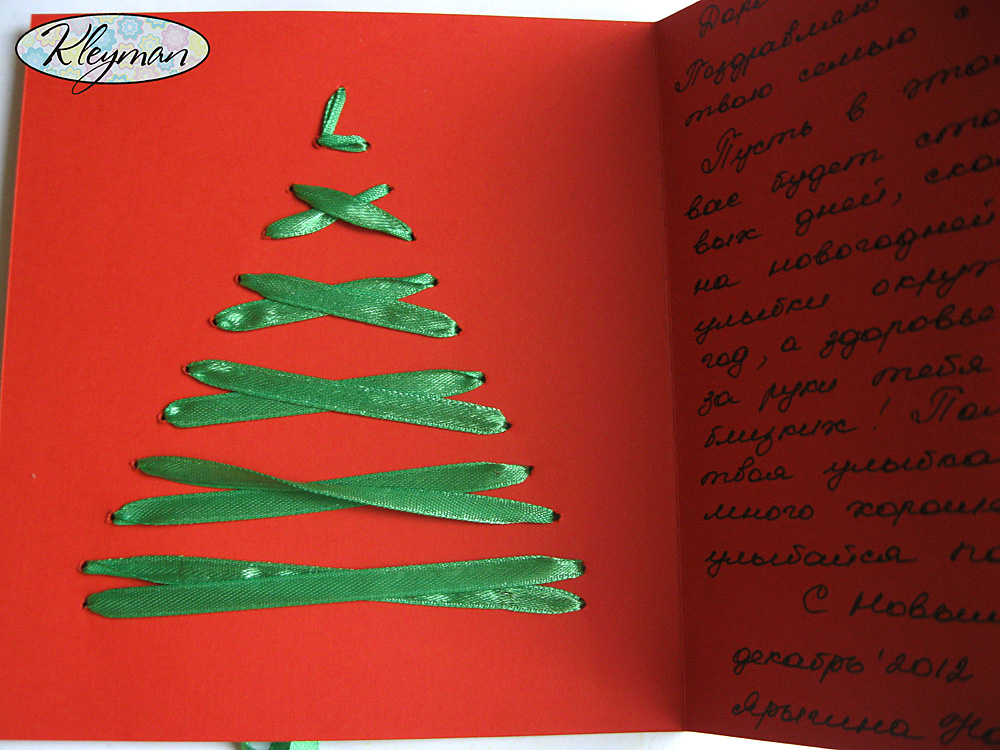 Kleyman
Поздравляю
твою семью с
Пусть в этом
вас будет
вых дней,
на новогодней
улыбки
год, а здоровье
за руки тебя
близких!
твоя улыбка
много
улыбайся
С Новым
декабрь'2012
Ярыгина